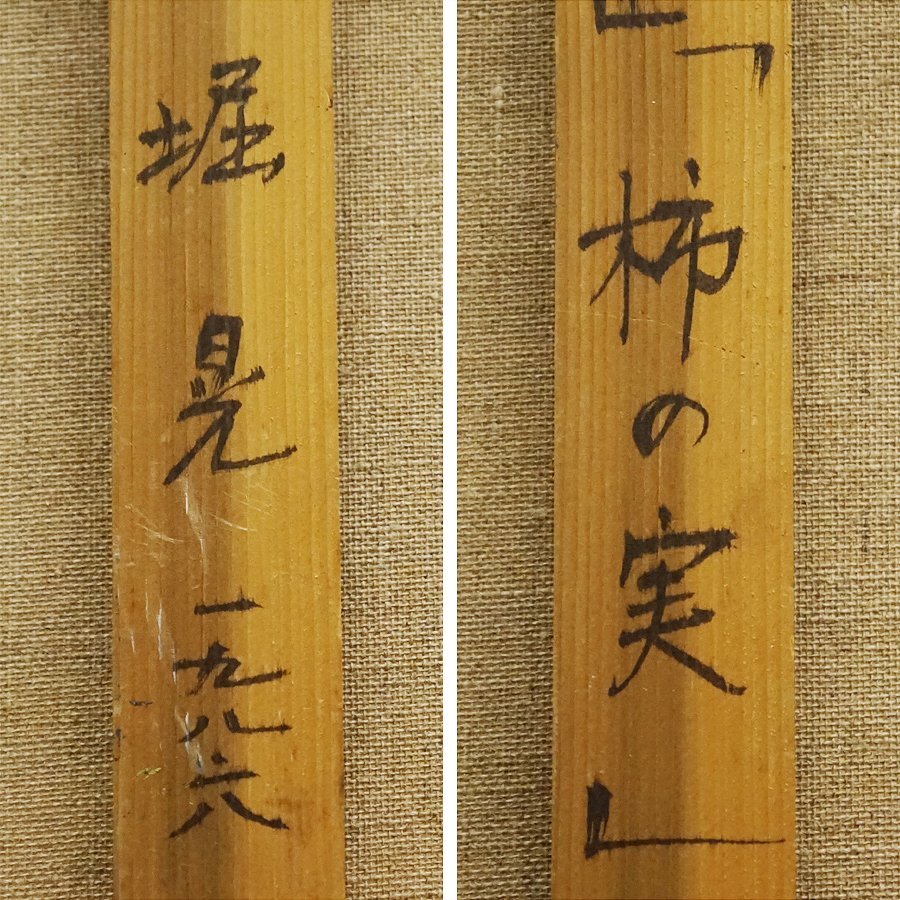 堀晃 一九八六
「柿の実」